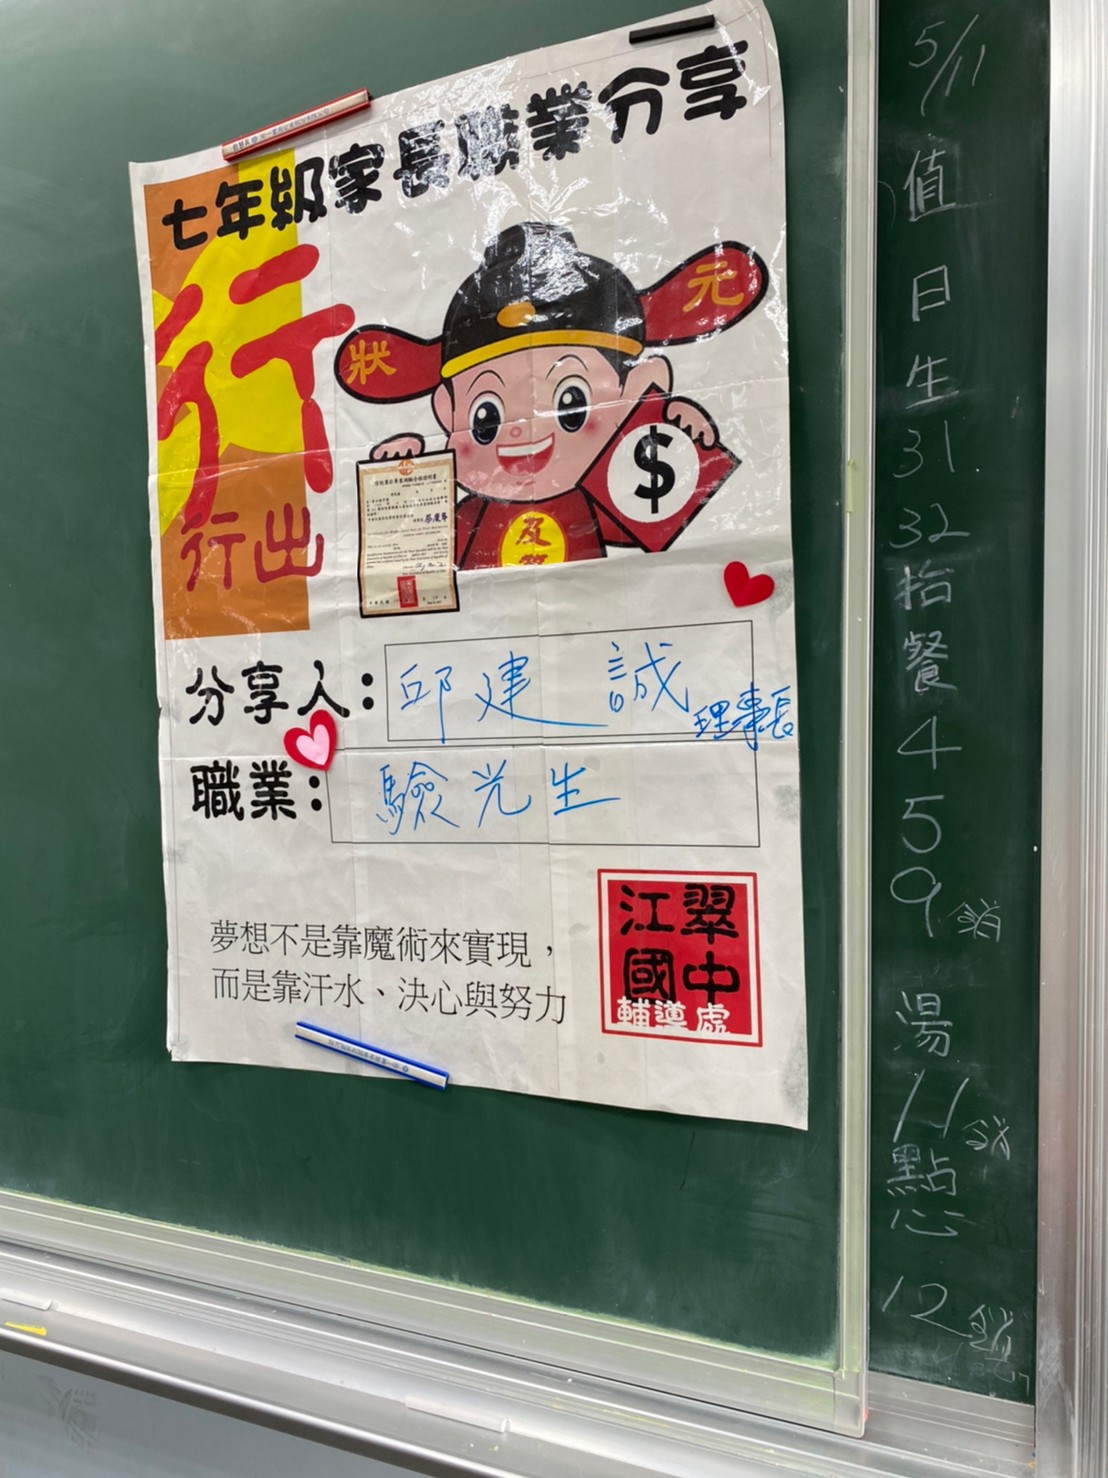 七年級家長職業分享
行
行出
狀元
$
及第
分享人：邱建誠
理事長
職業：驗光生
夢想不是靠魔術來實現，
而是靠汗水、決心與努力
江翠
國中
輔導處
5/11
值日生
31
32
抬餐
4
5
9
湯
11
點心
12